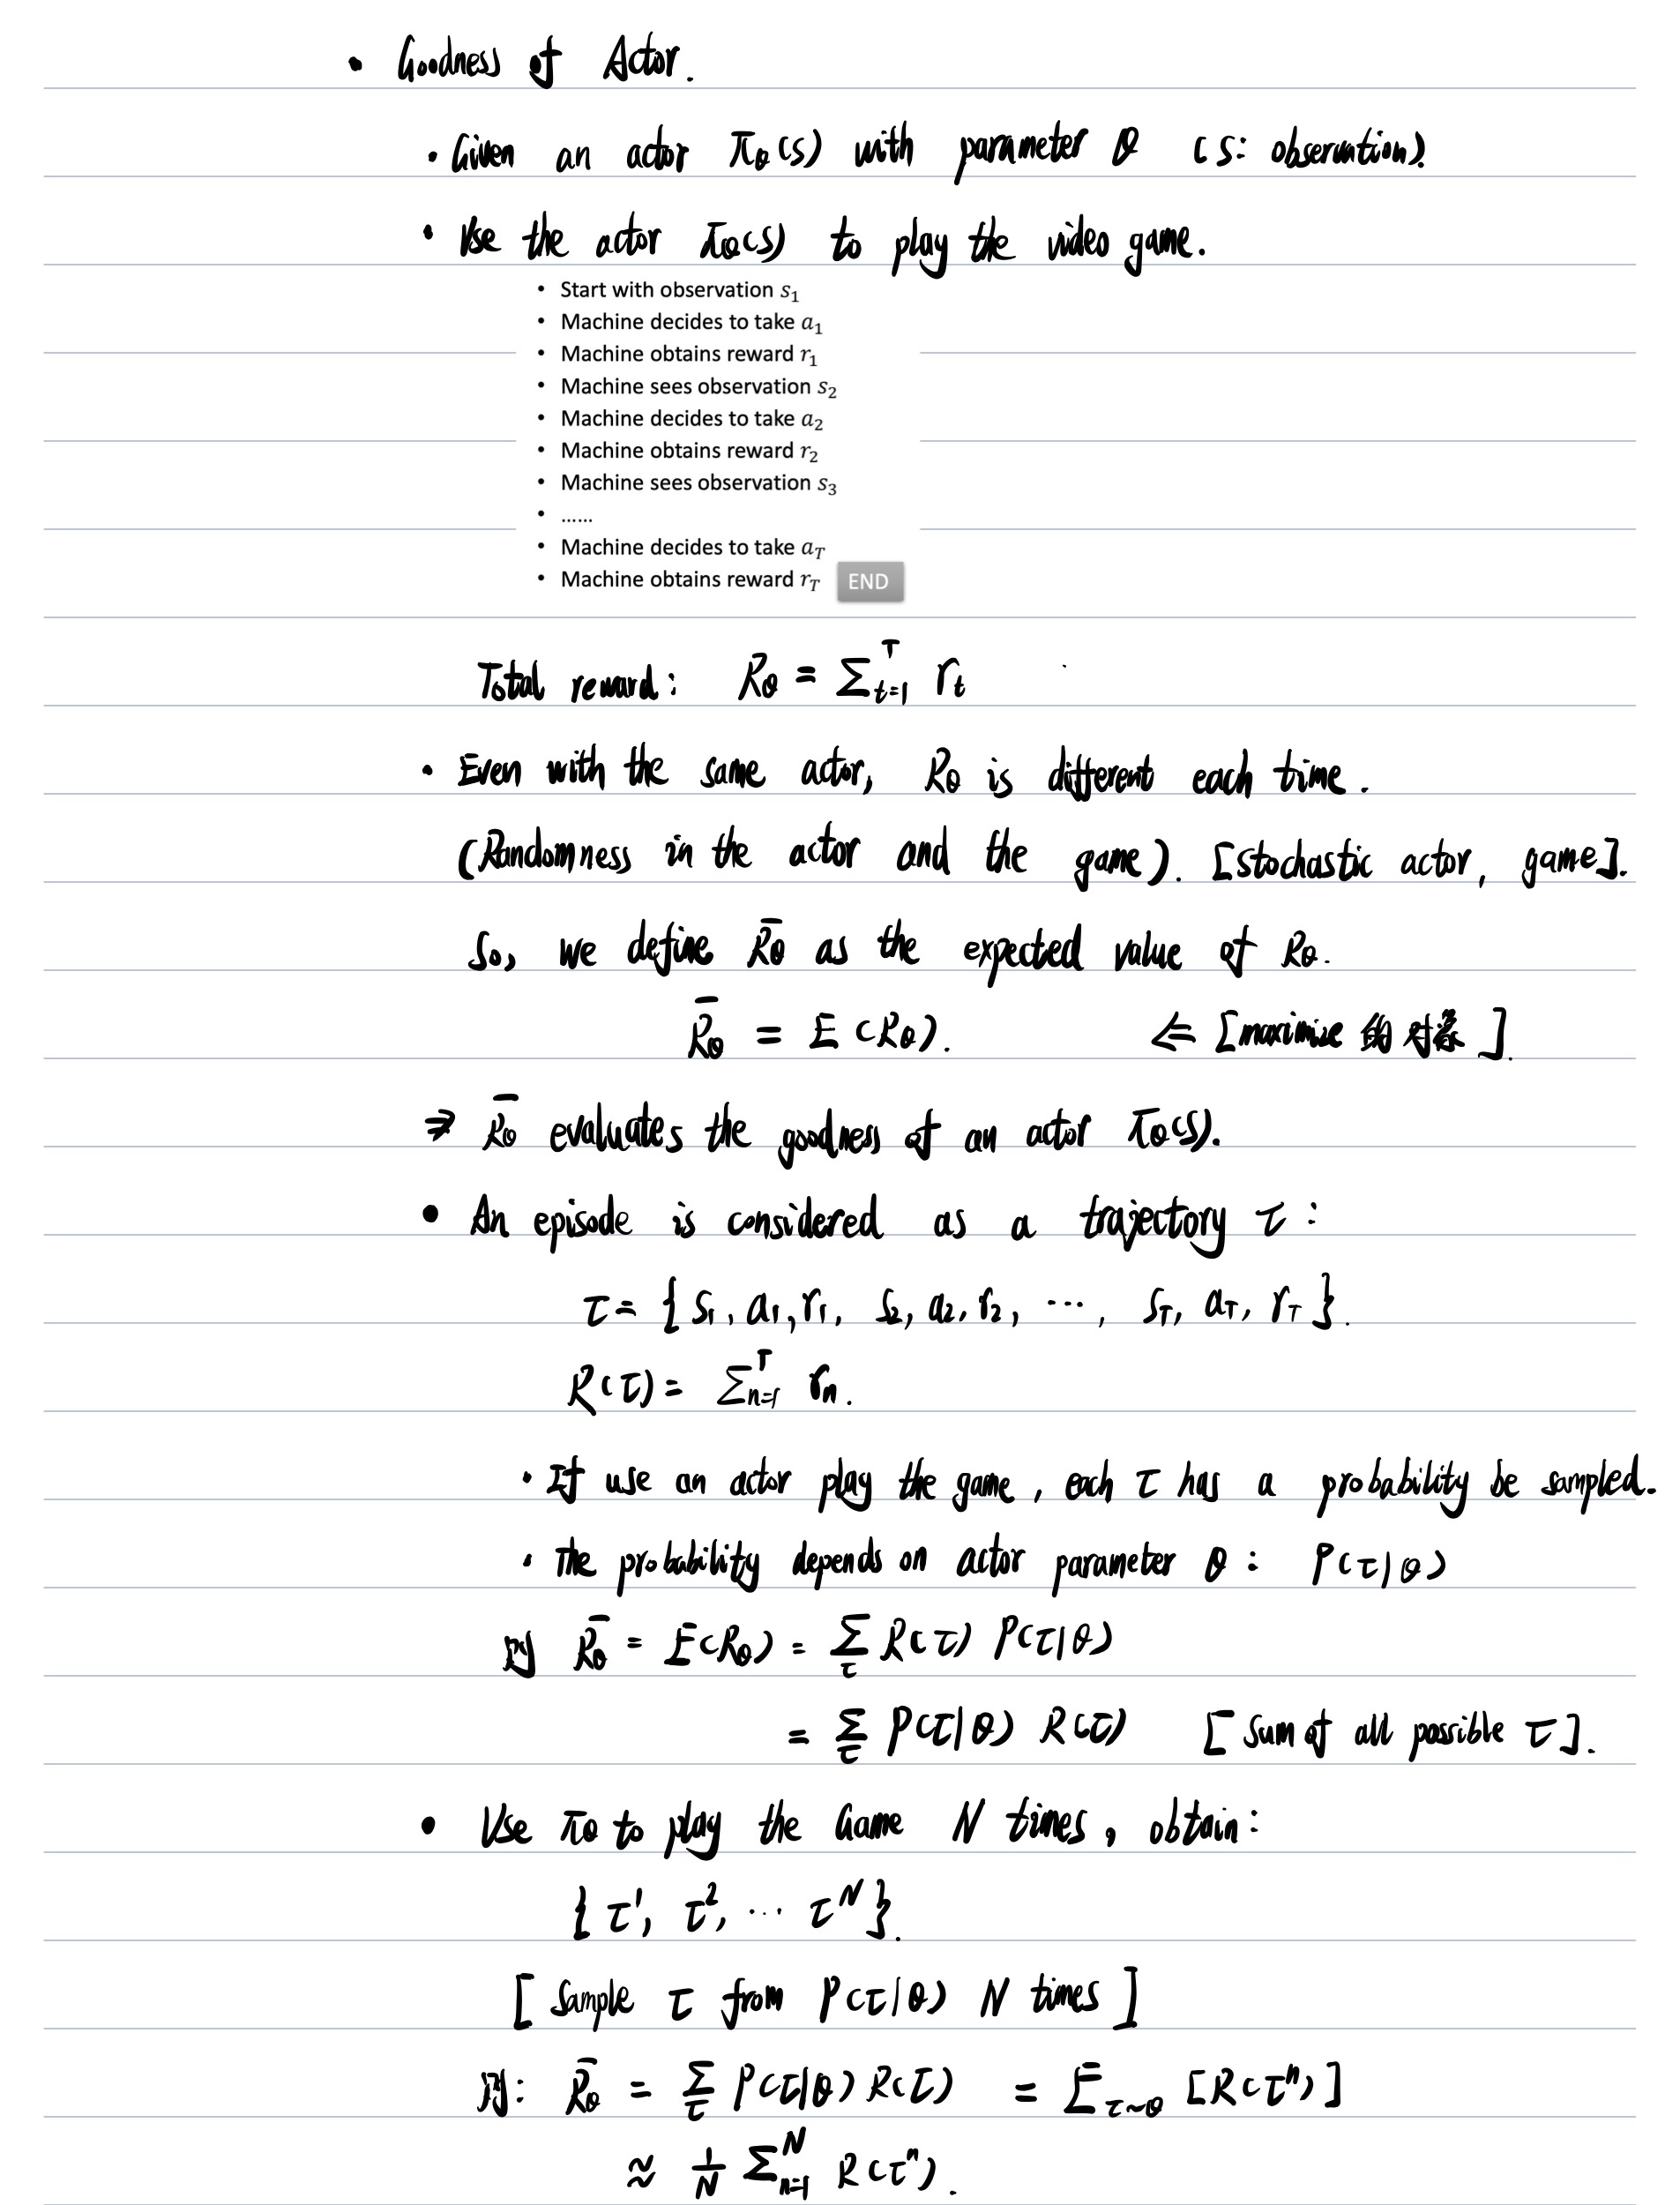 • Goodness of Actor.
• Given an actor πθ(s) with parameter θ (s: observation).
• Use the actor πθ(s) to play the video game.
• Start with observation s₁
• Machine decides to take a₁
• Machine obtains reward r₁
• Machine sees observation s₂
• Machine decides to take a₂
• Machine obtains reward r₂
• Machine sees observation s₃
• ……
• Machine decides to take a_T
• Machine obtains reward r_T END
Total reward: Rθ = Σ_{t=1}^{T} r_t
• Even with the same actor, Rθ is different each time.
(Randomness in the actor and the game). [stochastic actor, game].
So, we define R̄θ as the expected value of Rθ.
R̄θ = E(Rθ). ⇐ [maximize 的对象].
⇒ R̄θ evaluates the goodness of an actor πθ(s).
• An episode is considered as a trajectory τ:
τ = {s₁, a₁, r₁, s₂, a₂, r₂, ⋯, s_T, a_T, r_T}.
R(τ) = Σ_{n=1}^{T} r_n.
• If use an actor play the game, each τ has a probability be sampled.
• The probability depends on actor parameter θ: P(τ|θ)
则 R̄θ = E(Rθ) = Σ_τ R(τ) P(τ|θ)
= Σ_τ P(τ|θ) R(τ) [Sum of all possible τ].
• Use πθ to play the Game N times, obtain:
{τ¹, τ², ⋯ τᴺ}.
[Sample τ from P(τ|θ) N times]
则: R̄θ = Σ_τ P(τ|θ) R(τ) = E_{τ~θ} [R(τⁿ)]
≈ 1/N Σ_{n=1}^{N} R(τⁿ).